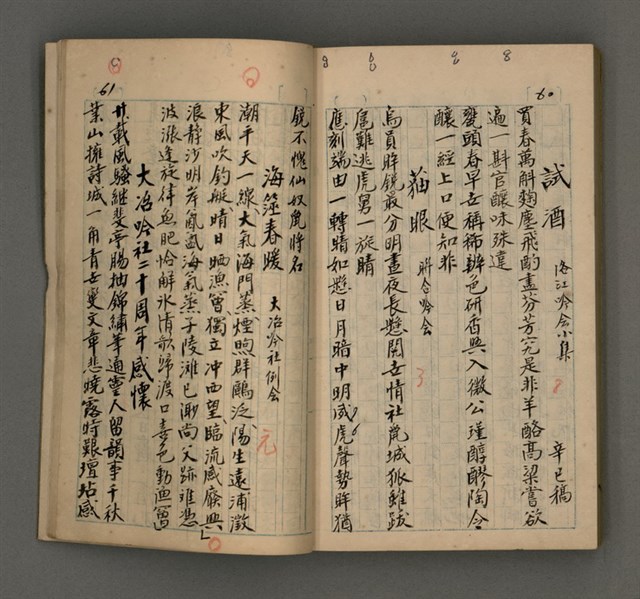 60
試酒 洛江吟會小集 辛巳稿
買春萬斛麴塵飛酌盡芬芳究是非羊酪高粱嘗欲
遍一斟官釀味殊違
甕頭春早世稱稀辨色研香與入微公瑾醇醪陶令
釀一經上口便知非
貓眼 聯合吟會
烏員眸鏡最分明晝夜長懸閱世情社鼠城狐雖跋
扈難逃虎舅一旋睛
應刻端由一轉睛如懸日月暗中明威虎聲勢眸猶
61
鏡不愧仙奴鹿將名
海筮春暖 大冶吟社例會
潮平天一線大氣海門蒸煙煦群鷗泛陽生遠浦澂
東風吹釣艇晴日晒漁罾獨立冲西望臨流感廢興
浪靜沙明岸氤氳氣蒸子陵灘已渺尚父跡難憑
波漲逢旋律魚肥恰解氷清歌歸渡口喜色動漁罾
大冶吟社二十周年感懷
廿載風騷繼斐亭腸抽錦繡筆通靈人留韻事千秋
業山擁詩城一角青世變文章悲燒露時艱壇坫感